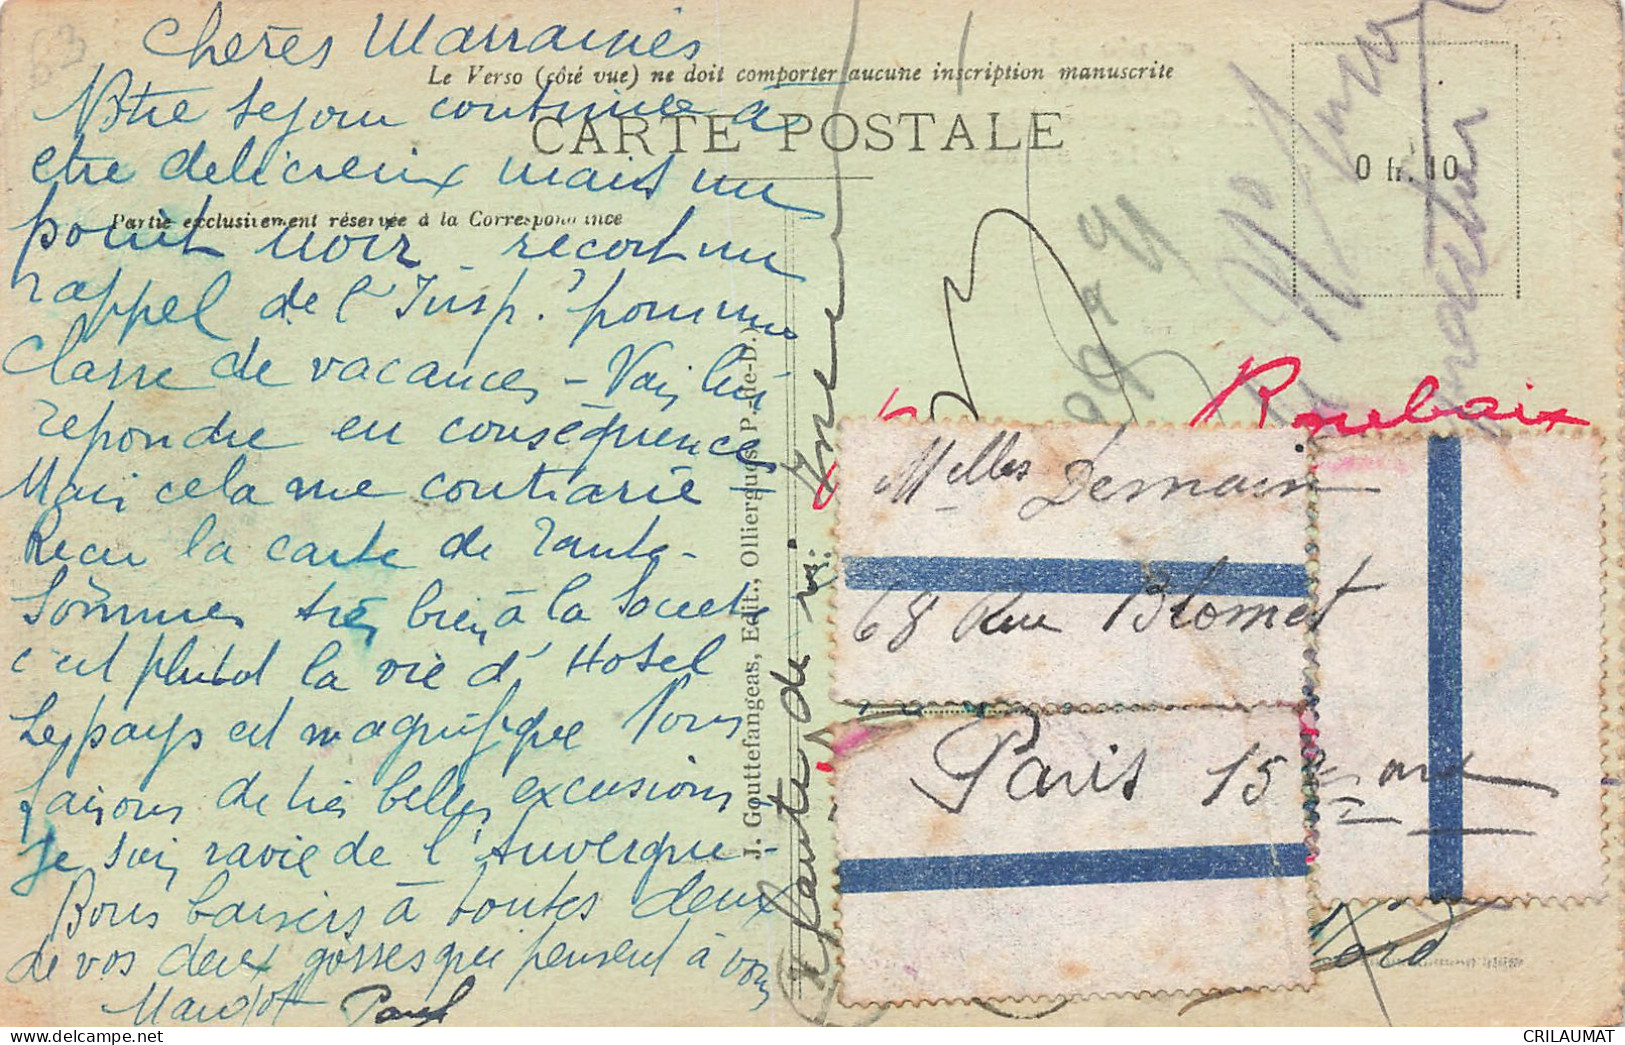 63
Chères Marraines
Le Verso (côté vue) ne doit comporter aucune inscription manuscrite
CARTE POSTALE
Partie exclusivement réservée à la Correspondance
0 fr. 10
Notre sejour continue à
etre delicieux mais un
point noir recort un
rappel de l'Insp. pour une
Classe de vacances - Vais lui
repondre en conséquence
Mais cela me contrarie -
Recu la carte de Tante -
Sommes très bien à la Societe
c'est plutot la vie d'Hotel
Le pays est magnifique Nous
faisons de très belles excursions
Je suis ravie de l'Auvergne -
Bons baisers à toutes deux
de vos deux gosses qui pensent à vous
Margot Paul
J. Gouttefangeas, Edit., Olliergues P.-de-D.
Roubaix
Melles Demain
68 Rue Blomet
Paris 15e ard
Nord
CRILAUMAT